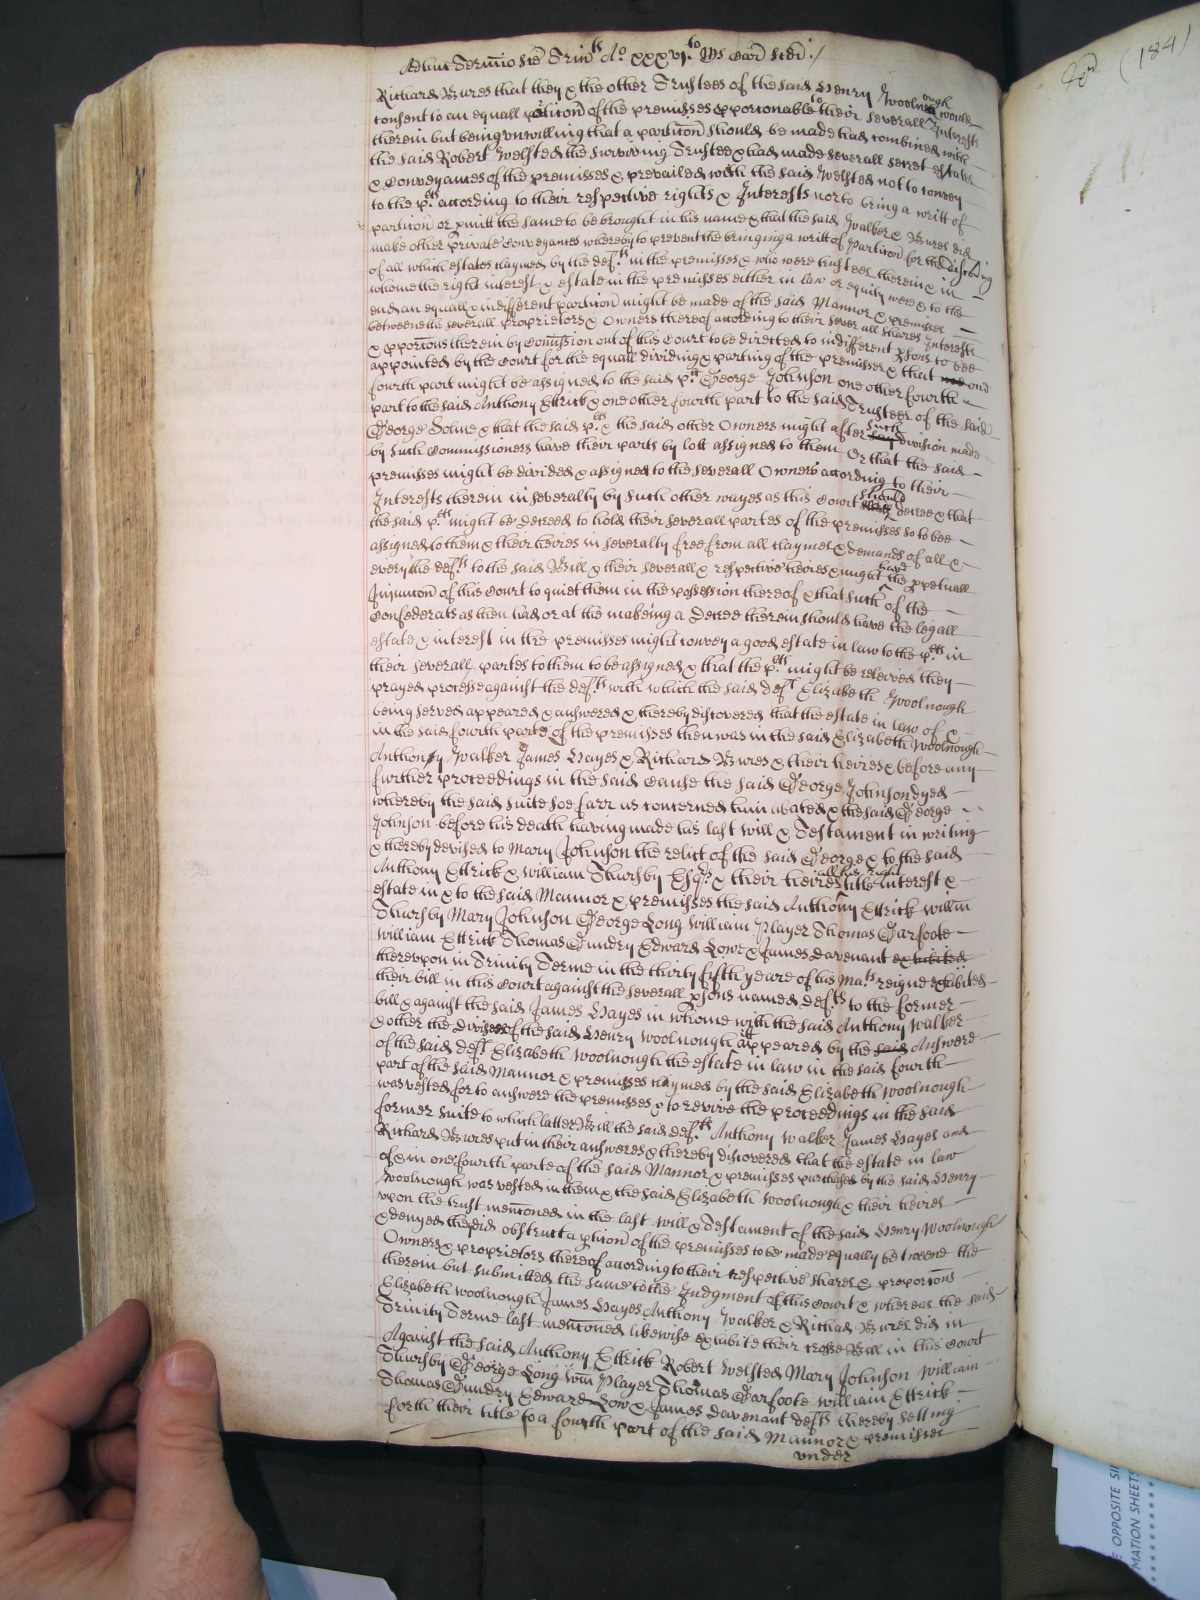 Adhuc Termio Sce Trin^ts Ao xxxvj^to Rs Car Scdi
Richard Bures that they & the other Trustees of the said Henry Woolnough would
consent to an equall pticon of the premisses & porconable to their severall Interests
therein but being unwilling that a particon should be made had combined with
the said Robert Welsted the surviving Trustee & had made severall secret estates
& Conveyances of the premisses & prevailed with the said Welsted not to convey
to the p^lts according to their respective rights & Interests nor to bring a writt of
particon or pmitt the same to be brought in his name & that the said Walker & Bures did
make other private Conveyances whereby to prevent the bringing a writt of particon for the discovery
of all which estates claymed by the def^ts in the premisses & who were trustees therein & in
whome the right interest & estate in the premisses either in law or equity were & to the
end an equall & indifferent particon might be made of the said Mannor & premisses
betweene the severall proprietors & Owners thereof according to their severall shares Interests
& pporcons therein by Comission out of this Court to be directed to indifferent psons to bee
appointed by the Court for the equall dividing & parting of the premisses & that one
fourth part might be assigned to the said p^lt George Johnson one other fourth
part to the said Anthony Ettrick & one other fourth part to the said Trustees of the said
George Dolme & that the said p^lts & the said other Owners might after such division made
by such Commissioners have their parts by lott assigned to them Or that the said
premisses might be divided & assigned to the severall Owners according to their
Interests therein in severalty by such other wayes as this Court should decree & that
the said p^lts might be decreed to hold their severall partes of the premisses so to bee
assigned to them & their heires in severalty free from all claymes & demands of all &
every the def^ts to the said Bill & their severall & respective heires & might have the ppetuall
Injuncon of this Court to quiet them in the possession thereof & that such of the
Confederats as then had or at the makeing a Decree therein should have the legall
estate & interest in the premisses might convey a good estate in law to the p^lts in
their severall partes to them to be assigned & that the p^lts might be releived they
prayed processe against the def^ts with which the said def^t Elizabeth Woolnough
being served appeared & answered & thereby discovered that the estate in law of &
in the said fourth parte of the premisses then was in the said Elizabeth Woolnough
Anthony Walker James Hayes & Richard Bures & their heires & before any
further proceedings in the said Cause the said George Johnson dyed
whereby the said suite soe farr as concerned him abated & the said George
Johnson before his death having made his last will & Testament in writing
& thereby devised to Mary Johnson the relict of the said George & to the said
Anthony Ettrick & William Thursby Esq^rs & their heires all his right title Interest &
estate in & to the said Mannor & premisses the said Anthony Ettrick Willm
Thursby Mary Johnson George Long William Player Thomas Garfoote
William Ettrick Thomas Gundry Edward Low & James Davenant exhibited
thereupon in Trinity Terme in the thirty fifth yeare of his Ma^ts reigne exhibited
their bill in this Court against the severall psons named def^ts to the former
bill & against the said James Hayes in whome with the said Anthony Walker
& other the devisees of the said Henry Woolnough itt appeared by the said Answere
of the said def^t Elizabeth Woolnough the estate in law in the said fourth
part of the said Mannor & premisses claymed by the said Elizabeth Woolnough
was vested for to answere the premisses & to revive the proceedings in the said
former suite to which latter Bill the said def^ts Anthony Walker James Hayes and
Richard Bures put in their answeres & thereby discovered that the estate in law
of & in one fourth parte of the said Mannor & premisses purchased by the said Henry
Woolnough was vested in them & the said Elizabeth Woolnough & their heires
upon the trust menconed in the last will & Testament of the said Henry Woolnough
& denyed they did obstruct a pticon of the premisses to be made equally betweene the
Owners & proprietors thereof according to their respective shares & proporcons
therein but submitted the same to the Judgment of this Court & whereas the said
Elizabeth Woolnough James Hayes Anthony Walker & Richard Bures did in
Trinity Terme last menconed likewise exhibite their crosse Bill in this Court
Against the said Anthony Ettrick Robert Welsted Mary Johnson William
Thursby George Long Wm Player Thomas Garfoote William Ettrick
Thomas Gundry Edward Low & James Davenant def^ts thereby setting
forth their title to a fourth part of the said Mannor & premisses
under
(184)
E OPPOSITE SI
MATION SHEETS